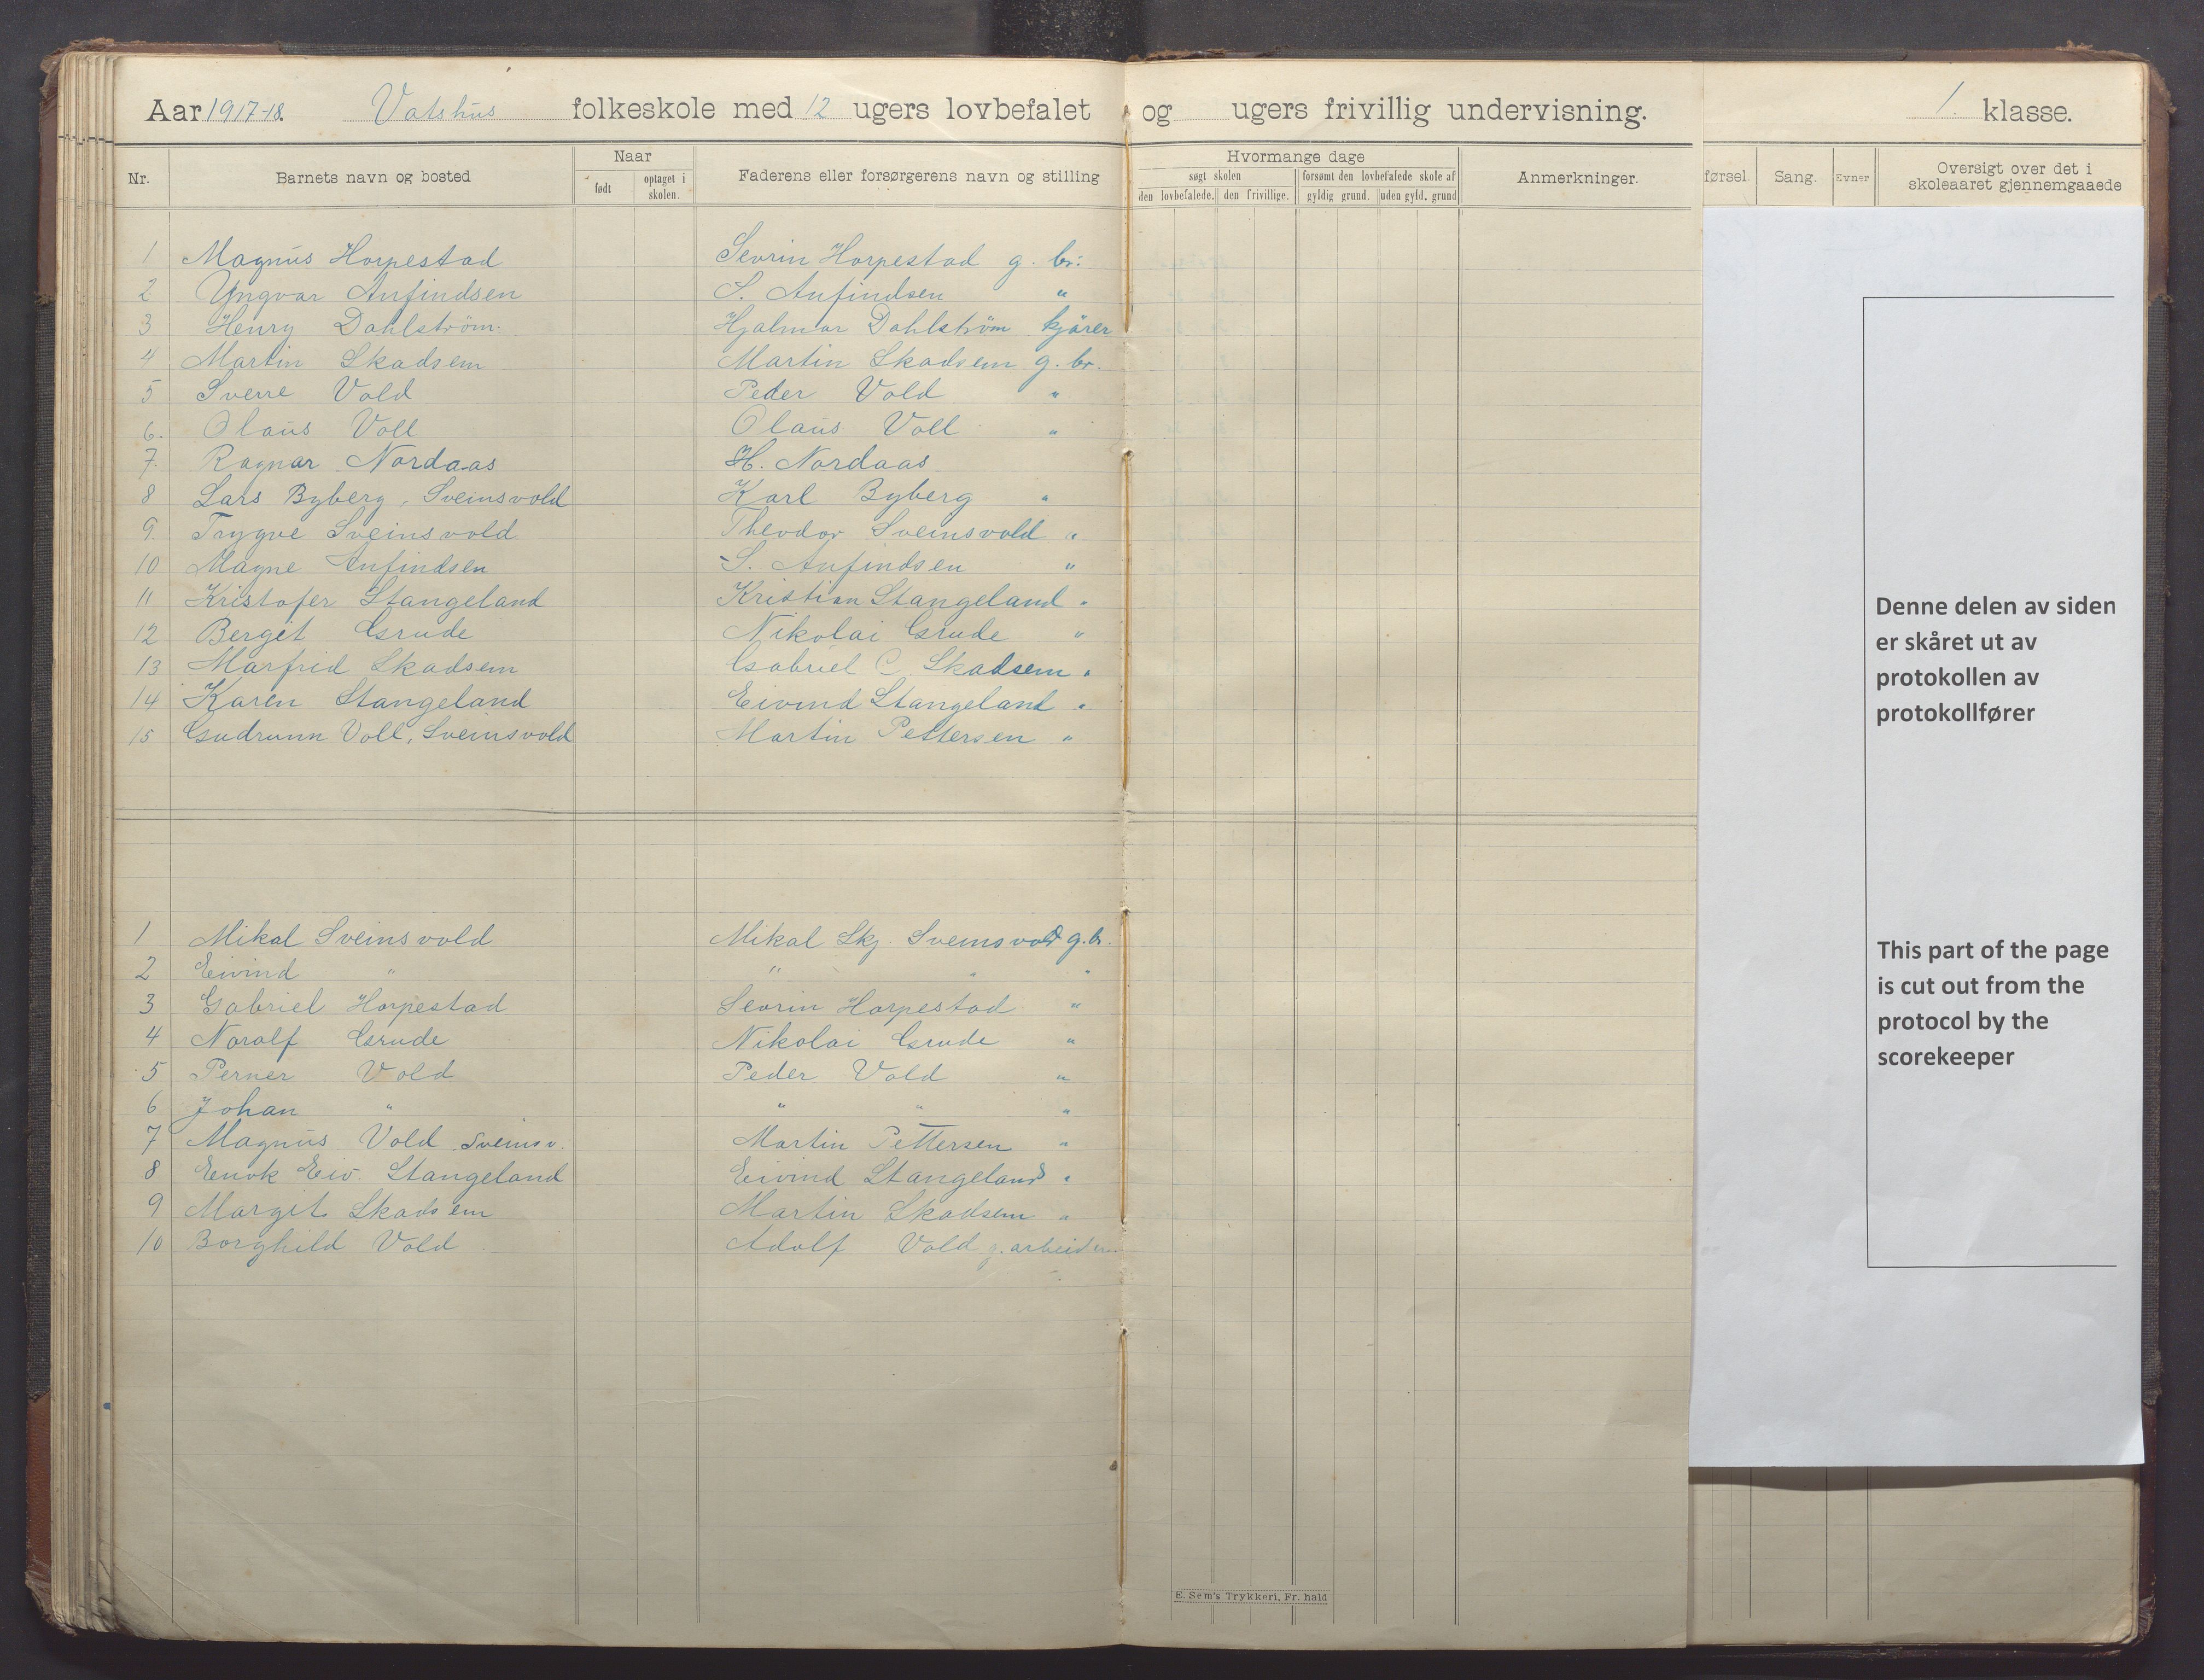 Aar 1917-18. Vatshus folkeskole med 12 ugers lovbefalet og ugers frivillig undervisning. 1. klasse.
Nr. Barnets navn og bosted Naar født optaget i skolen. Faderens eller forsørgerens navn og stilling Hvormange dage søgt skolen den lovbefalede. den frivillige. forsømt den lovbefalede skole af gyldig grund. uden gyld. grund Anmerkninger. førsel. Sang. Evner Oversigt over det i skoleaaret gjennemgaaede
1 Magnus Horpestad Sevrin Horpestad g. br:
2 Yngvar Anfindsen S. Anfindsen "
3 Henry Dahlström. Hjalmar Dahlström kjörer
4 Martin Skadsem Martin Skadsem g. br.
5 Sverre Vold Peder Vold "
6. Olaus Voll Olaus Voll "
7. Ragnar Nordaas H. Nordaas
8 Lars Byberg, Sveinsvold Karl Byberg "
9. Trygve Sveinsvold Theodor Sveinsvold "
10 Magne Anfindsen S. Anfindsen "
11 Kristofer Stangeland Kristian Stangeland "
12 Berget Grude Nikolai Grude "
13 Marfrid Skadsem Gabriel C. Skadsem "
14 Karen Stangeland Eivind Stangeland "
15 Gudrunn Voll, Sveinsvold Martin Pettersen "
1 Mikal Sveinsvold Mikal Skj. Sveinsvold g.br.
2 Eivind " " " "
3 Gabriel Horpestad Sevrin Horpestad "
4 Noralf Grude Nikolai Grude "
5 Perner Vold Peder Vold "
6 Johan " " " "
7 Magnus Vold Sveinsv. Martin Pettersen "
8 Enok Eiv. Stangeland Eivind Stangeland "
9 Margit Skadsem Martin Skadsem "
10 Borghild Vold Adolf Vold g. arbeider
E. Sem's Trykkeri, Fr. hald
Denne delen av siden
er skåret ut av
protokollen av
protokollfører
This part of the page
is cut out from the
protocol by the
scorekeeper